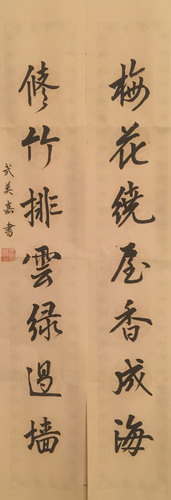 梅花绕屋香成海
修竹排雲绿过墙
武美嘉書